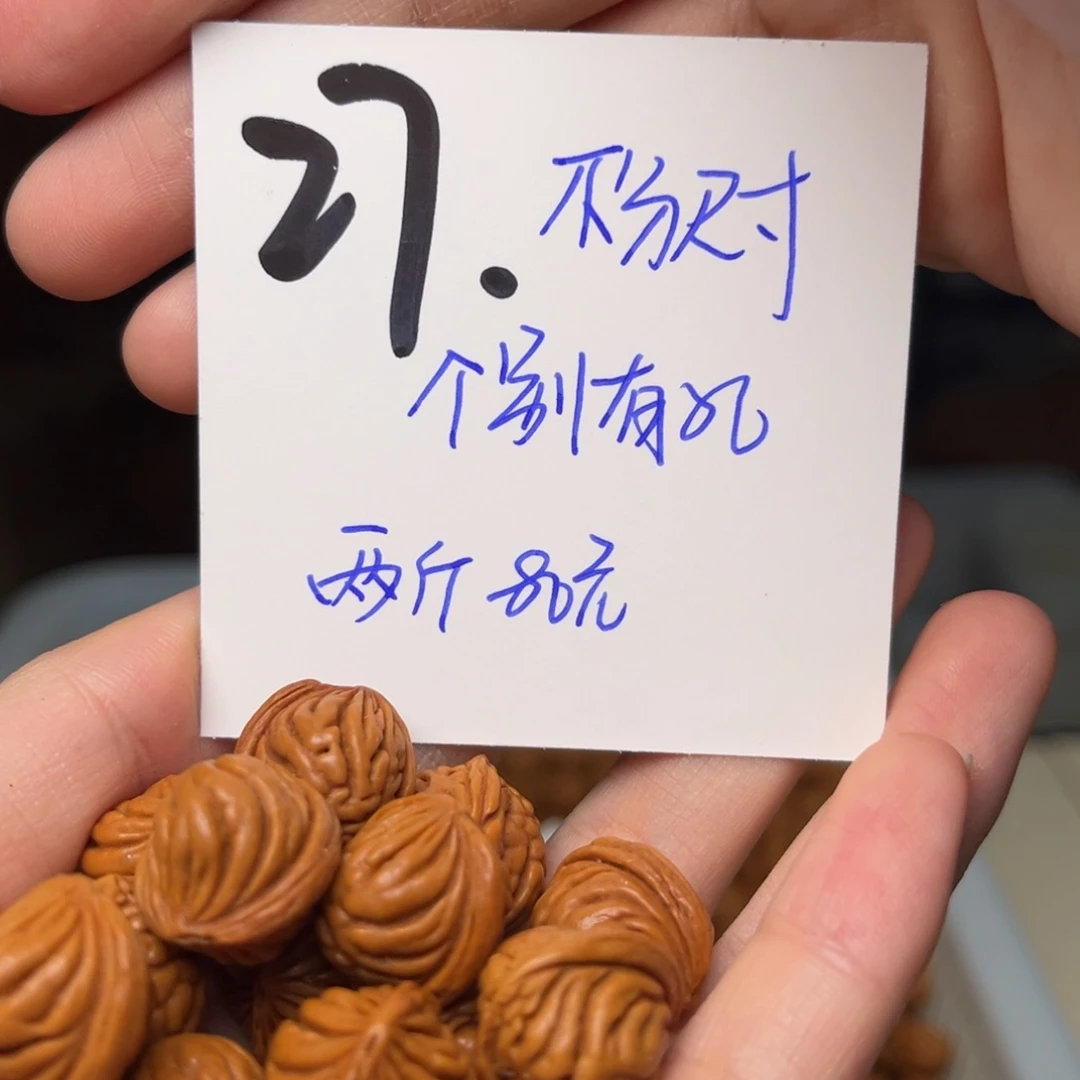 27. 不分尺寸
个别有孔
两斤80元